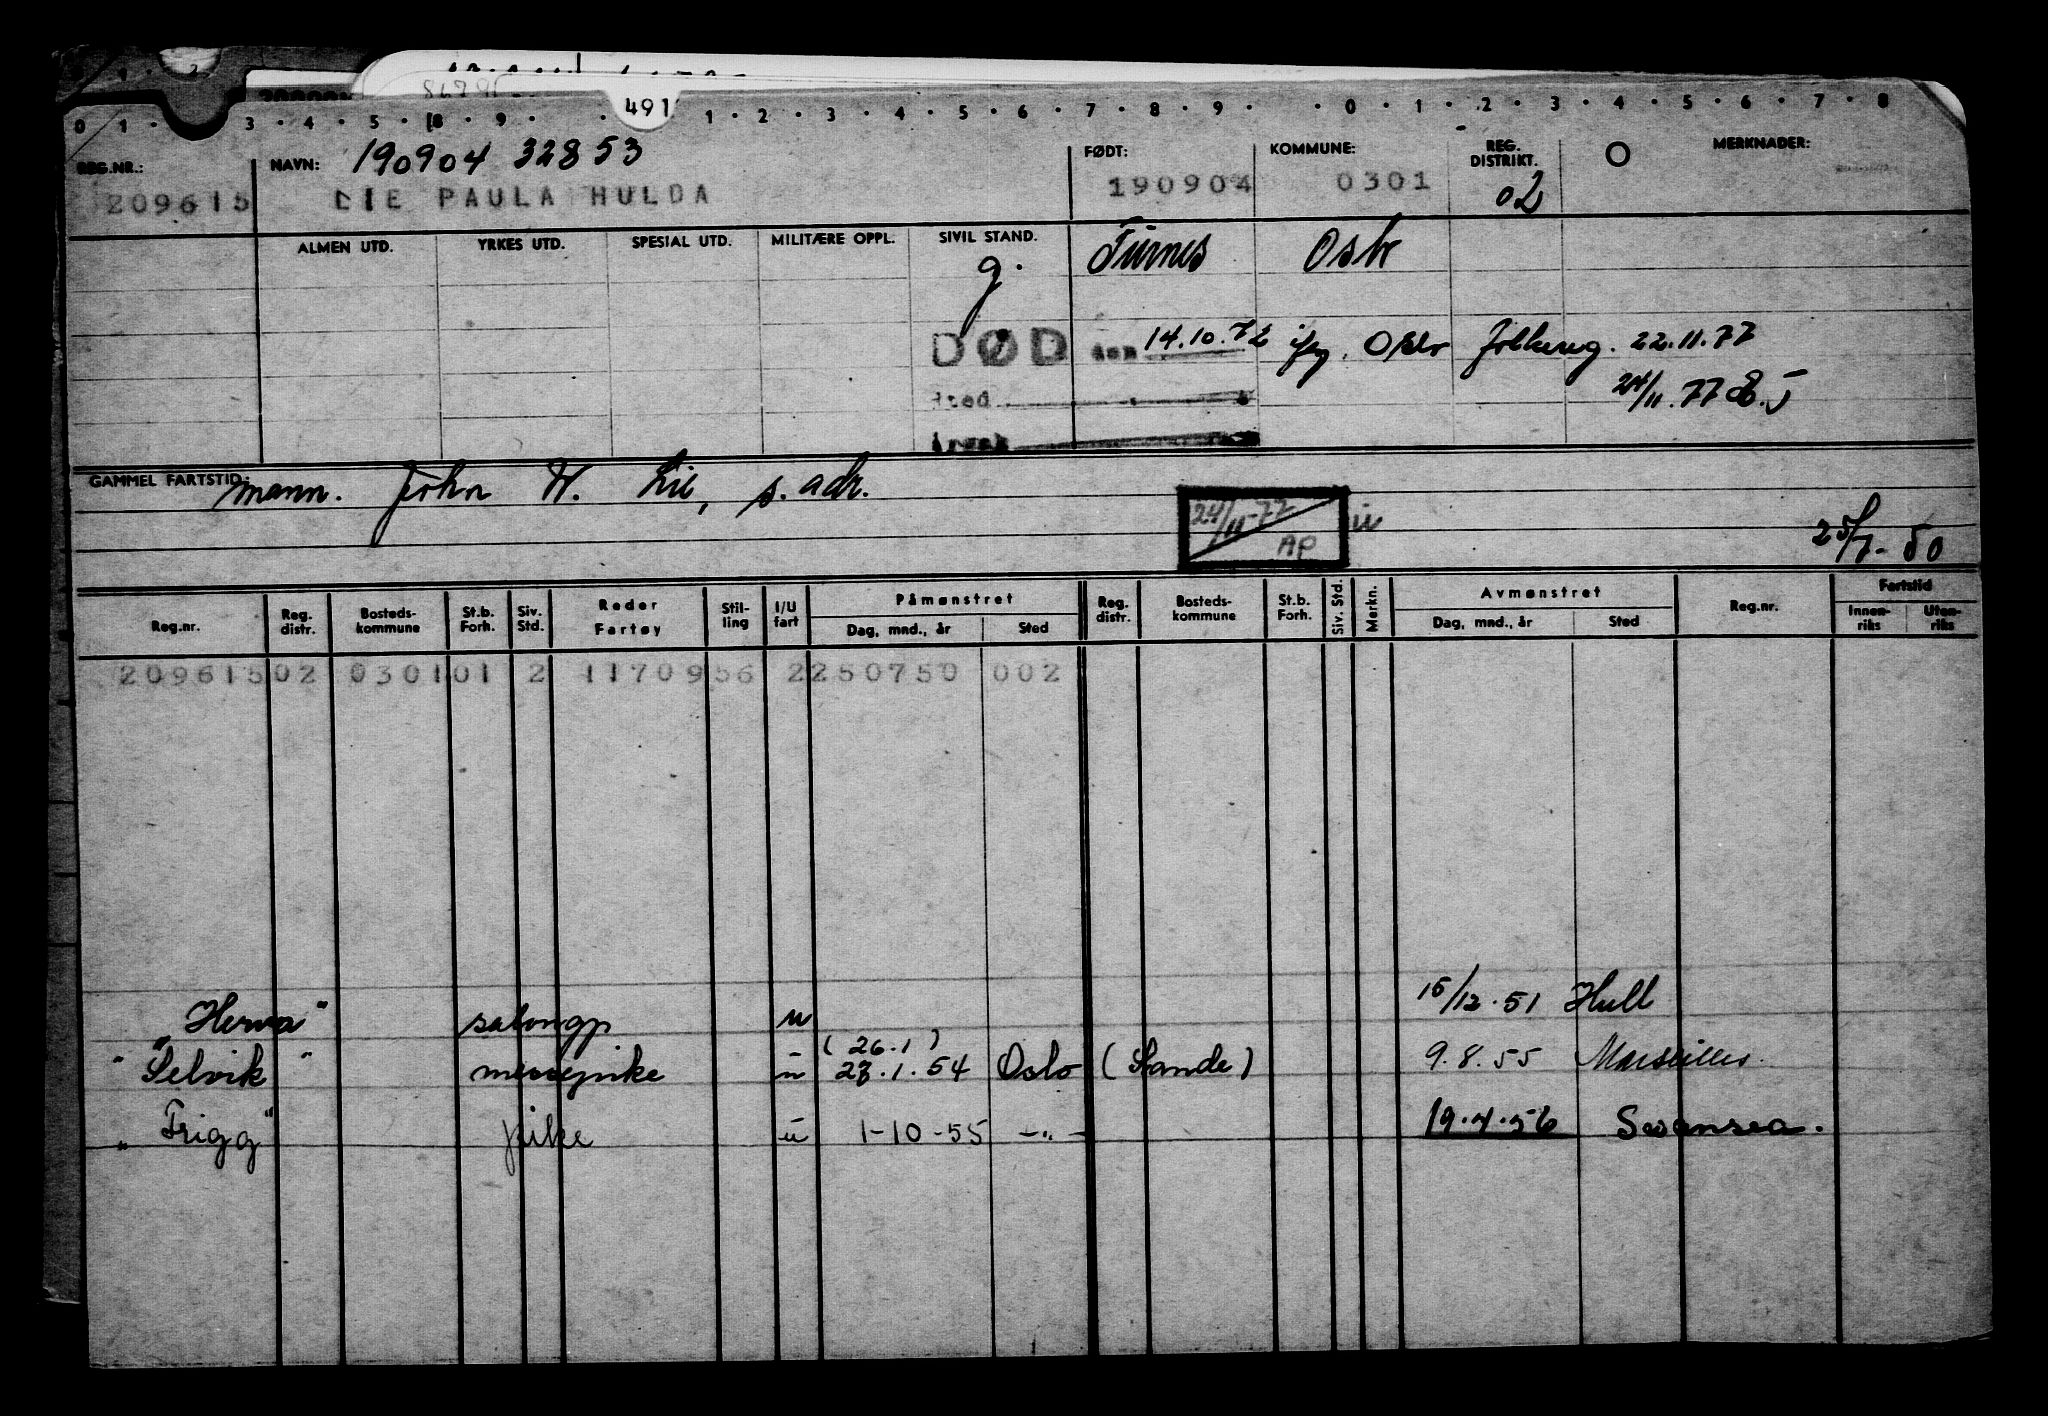 8679
491
0 1 · 3 · 4 · 5 · 8 · 9 · 1 · 2 · 3 · 4 · 5 · 6 · 7 · 8 · 9 · · 0 · 1 · 2 · 3 · 4 · 5 · 6 · 7 · 8
REG.NR.: NAVN: 190904 32853 FØDT: KOMMUNE: REG. DISTRIKT. O MERKNADER:
209615 LIE PAULA HULDA 190904 0301 02
ALMEN UTD. YRKES UTD. SPESIAL UTD. MILITÆRE OPPL. SIVIL STAND.
g. Furnes Oslo
DØD den 14.10.72 ifg. Oslo folkereg. 22.11.77
Sted 24/11.77
Årsak
GAMMEL FARTSTID: mann. John H. Lie, s. adr.
24/11-77 AP
25/7-50
Reg.nr. Reg. distr. Bosteds-kommune St.b. Forh. Siv. Std. Reder Fartøy Stil-ling I/U fart Påmønstret Reg. distr. Bosteds-kommune St.b. Forh. Siv. Std. Merkn. Avmønstret Reg.nr. Fartstid
Dag, mnd., år Sted Dag, mnd., år Sted Innen-riks Uten-riks
209615 02 0301 01 2 11709 56 2 250750 002
"Herva" salongp u 15/12.51 Hull
(26.1)
"Selvik" messepike u 27.1.54 Oslo (Sande) 9.8.55 Marseilles.
"Frigg" pike u 1-10-55 -"- 19.4.56 Swansea.